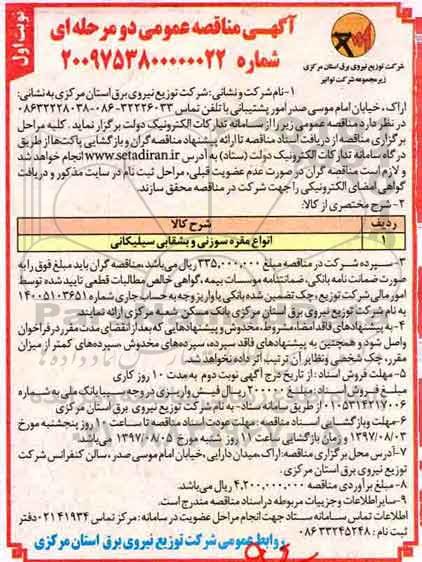 نوبت اول
آگهی مناقصه عمومی دو مرحله ای
شماره ۲۰۰۹۷۵۳۸۰۰۰۰۰۰۲۲
شرکت توزیع نیروی برق استان مرکزی
زیرمجموعه شرکت توانیر
۱-نام شرکت و نشانی: شرکت توزیع نیروی برق استان مرکزی به نشانی:
اراک، خیابان امام موسی صدر امور پشتیبانی با تلفن تماس ۳۲۲۲۶۰۳۳-۰۸۶ ۰۸۶۳۲۲۲۸۰۳۸
در نظر دارد مناقصه عمومی زیر را از سامانه تدارکات الکترونیک دولت برگزار نماید. کلیه مراحل
برگزاری مناقصه از دریافت اسناد مناقصه تا ارائه پیشنهاد مناقصه گران و بازگشایی پاکت‌ها از طریق
درگاه سامانه تدارکات الکترونیک دولت (ستاد) به آدرس www.setadiran.ir انجام خواهد شد
و لازم است مناقصه گران در صورت عدم عضویت قبلی، مراحل ثبت نام در سایت مذکور و دریافت
گواهی امضای الکترونیکی را جهت شرکت در مناقصه محقق سازند.
۲- شرح مختصری از کالا:
ردیف شرح کالا
۱ انواع مقره سوزنی و بشقابی سیلیکانی
۳-سپرده شرکت در مناقصه مبلغ ۳۳۵,۰۰۰,۰۰۰ ریال می‌باشد، مناقصه گران باید مبلغ فوق را به
صورت ضمانت نامه بانکی، ضمانتنامه موسسات بیمه، گواهی خالص مطالبات قطعی تایید شده توسط
امور مالی شرکت توزیع، چک تضمین شده بانکی یا واریز وجه به حساب جاری شماره ۱۴۰۰۵۱۰۳۶۵۱
به نام شرکت توزیع نیروی برق استان مرکزی بانک مسکن شعبه مرکزی ارائه نمایند.
۴-به پیشنهادهای فاقد امضاء، مشروط، مخدوش و پیشنهادهایی که بعد از انقضای مدت مقرر در فراخوان
واصل شود و همچنین به پیشنهادهای فاقد سپرده، سپرده‌های مخدوش، سپرده‌های کمتر از میزان
مقرر، چک شخصی و نظایر آن ترتیب اثر داده نخواهد شد.
۵- مهلت فروش اسناد: از تاریخ درج آگهی نوبت دوم به مدت ۱۰ روز کاری
مبلغ فروش اسناد: مبلغ ۲۰۰۰۰۰ ریال فیش واریزی در وجه سیبا بانک ملی به شماره
۰۱۰۵۳۱۴۲۱۷۰۰۶ از طریق سامانه ستاد- به نام شرکت توزیع نیروی برق استان مرکزی
۶- مهلت و بازگشایی اسناد مناقصه: مهلت عودت اسناد مناقصه تا ساعت ۱۰ روز پنجشنبه مورخ
۱۳۹۷/۰۸/۰۳ و زمان بازگشایی ساعت ۱۰ روز شنبه مورخ ۱۳۹۷/۰۸/۰۵ می‌باشد.
۷-آدرس محل برگزاری مناقصه: اراک، میدان دارایی، خیابان امام موسی صدر، سالن کنفرانس شرکت
توزیع نیروی برق استان مرکزی.
۸-مبلغ برآوردی مناقصه ۴,۲۰۰,۰۰۰,۰۰۰ ریال می‌باشد.
۹- سایر اطلاعات و جزییات مربوطه در اسناد مناقصه مندرج است.
اطلاعات تماس سامانه ستاد جهت انجام مراحل عضویت در سامانه: مرکز تماس ۰۲۱۴۱۹۳۴ دفتر
ثبت نام: ۰۸۶۳۳۲۴۵۲۴۸
روابط عمومی شرکت توزیع نیروی برق استان مرکزی